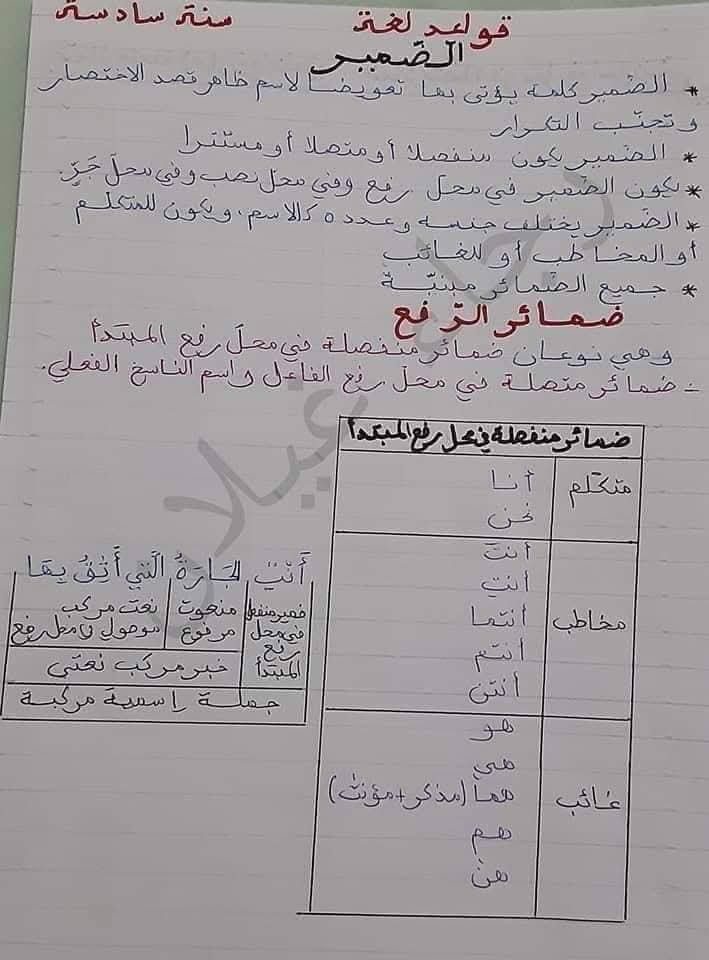 قواعد لغة
سنة سادسة
الضمير
* الضمير كلمة يؤتى بها تعويضا لاسم ظاهر قصد الاختصار
وتجنب التكرار
* الضمير يكون منفصلا أو متصلا أو مستترا
* يكون الضمير في محل رفع وفي محل نصب وفي محل جَرّ.
* الضمير يختلف جنسه وعدده كالاسم، ويكون للمتكلم
أو المخاطب أو للغائب
* جميع الضمائر مبنيّة
ضمائر الرّفع
وهي نوعان ضمائر منفصلة في محل رفع المبتدأ
- ضمائر متصلة في محل رفع الفاعل واسم الناسخ الفعلي.
ضمائر منفصلة في محل رفع المبتدأ
متكلم
أنا
نحن
مخاطب
أنتَ
أنتِ
أنتما
أنتم
أنتن
غائب
هو
هي
هما (مذكر+مؤنث)
هم
هنّ
أَنْتِ الجَارَةُ الَّتي أَثِقُ بِهَا
ضمير منفصل في محل رفع المبتدأ
منعوت مرفوع
نعت مركب موصولي في محل رفع
خبر مركب نعتي
جملة اسمية مركبة
رجاء غيلان